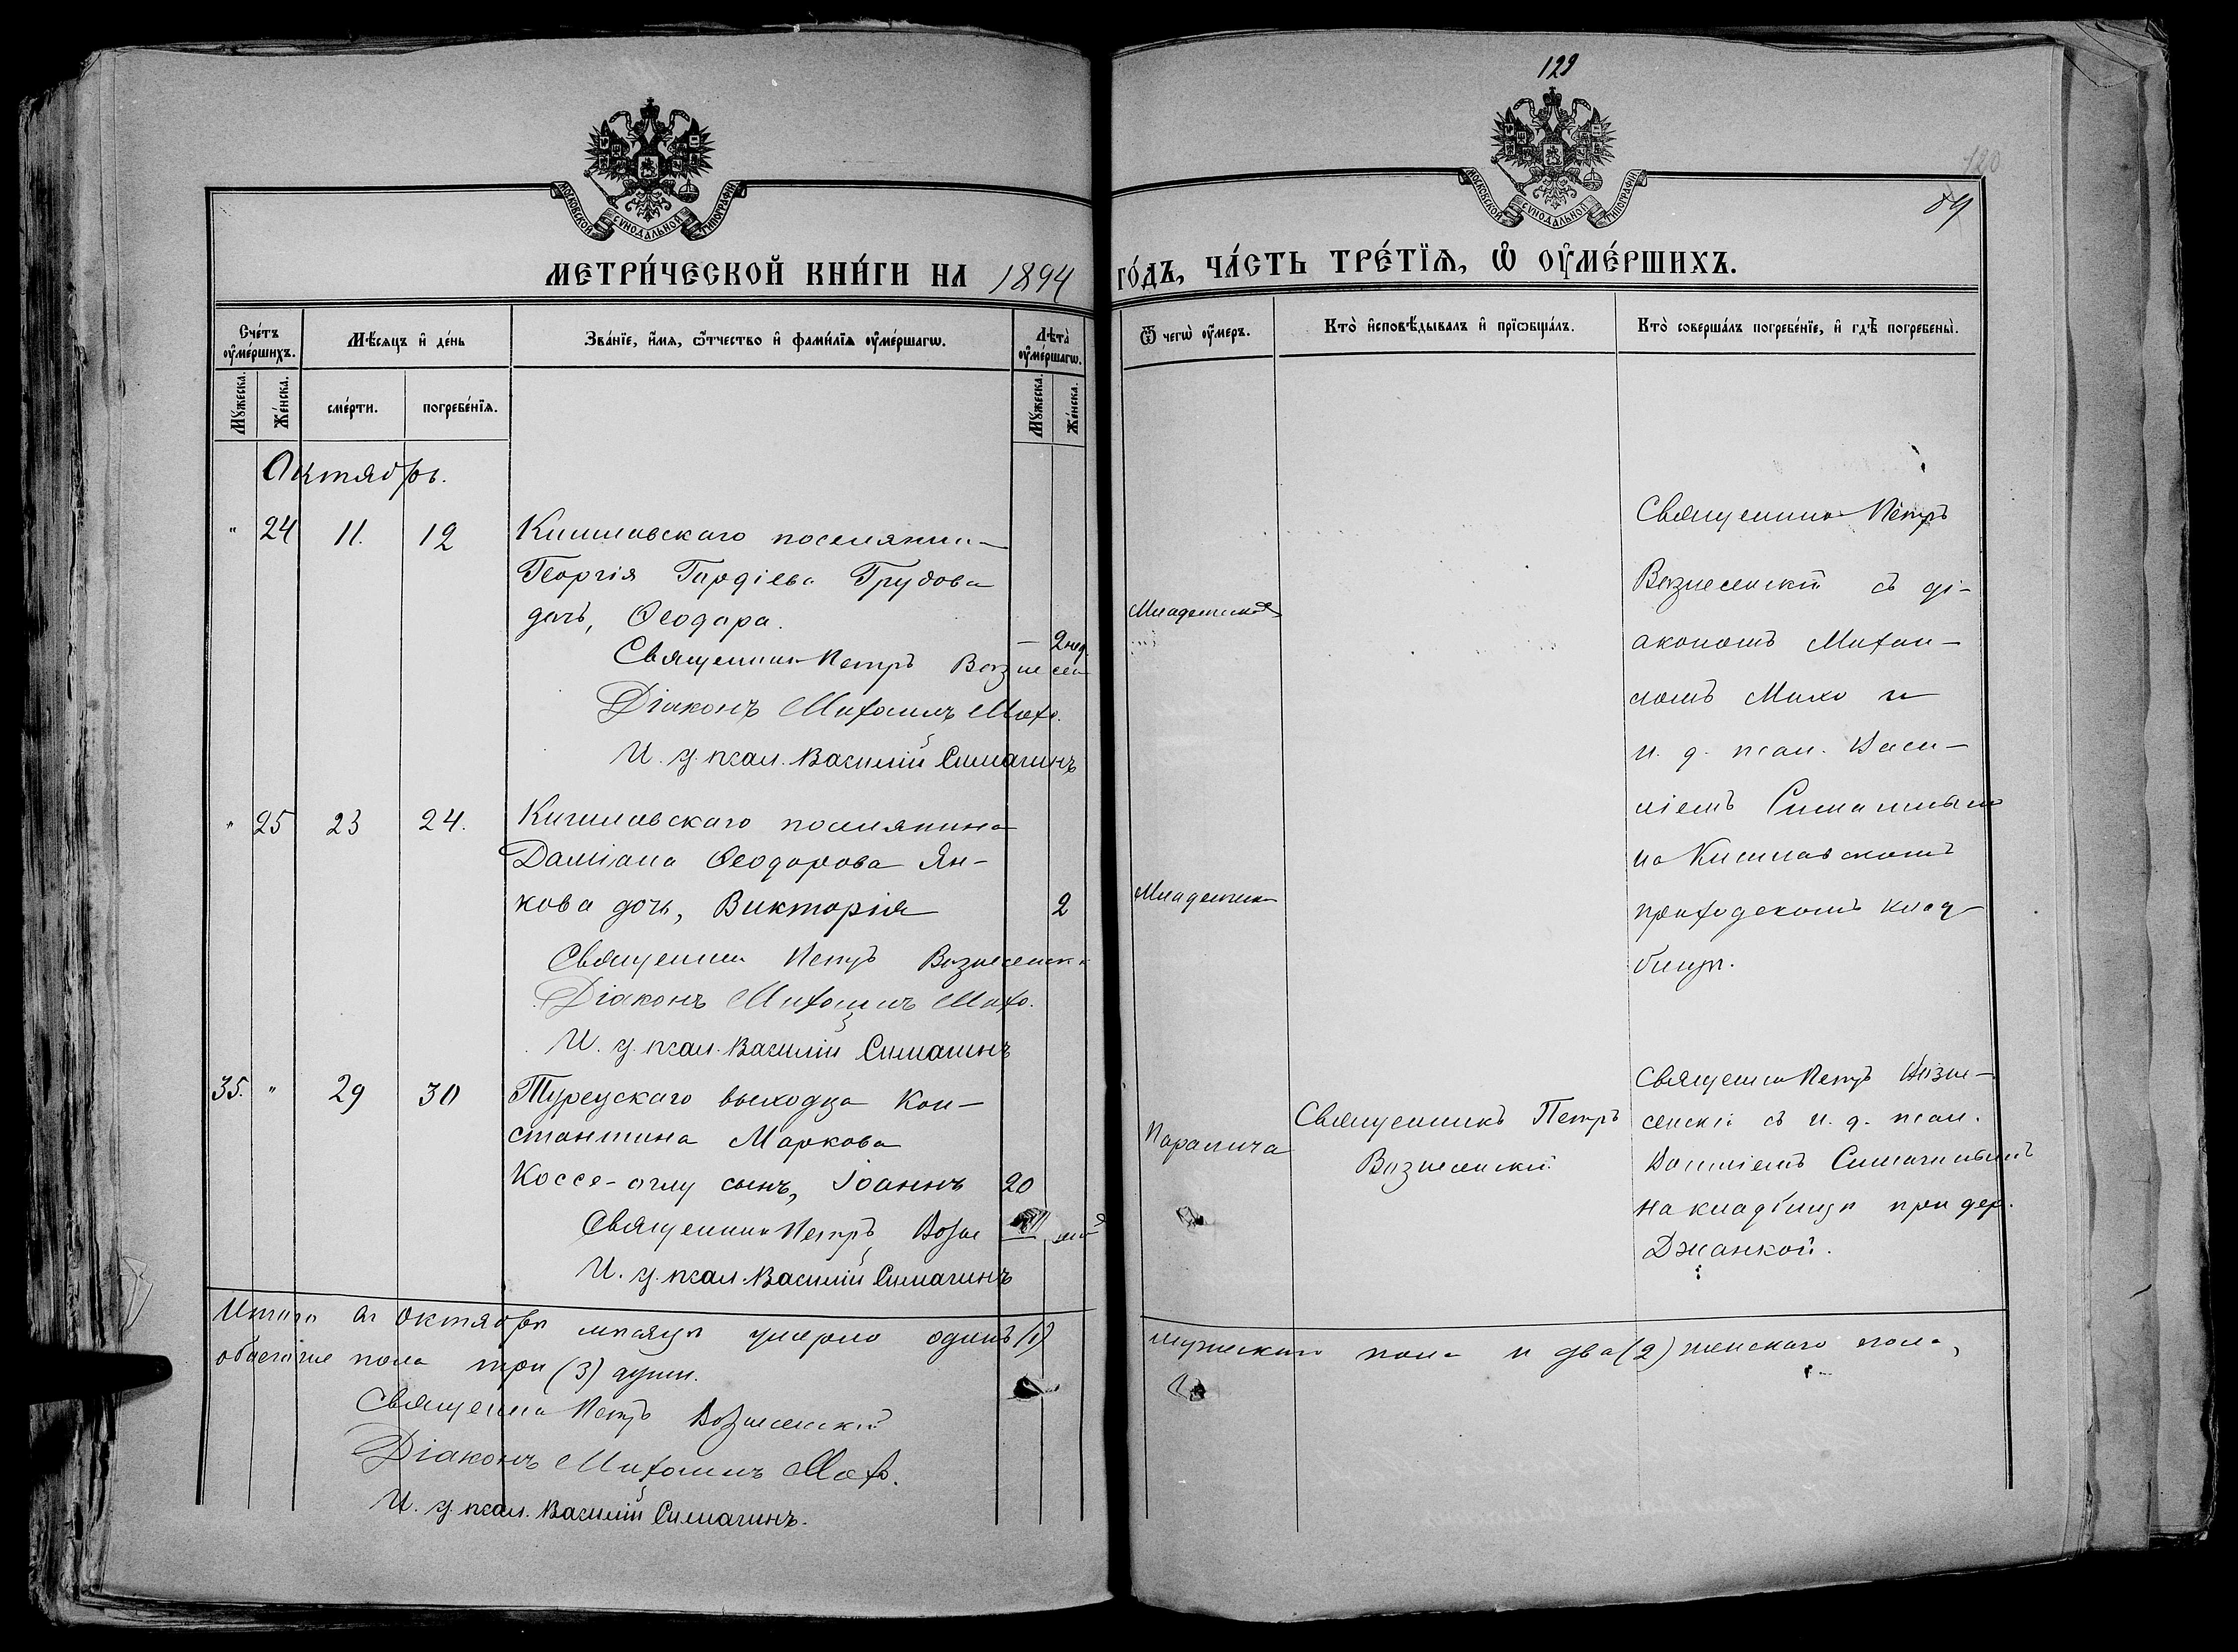 129
120
89
МОСКОВСКОЙ СѴНОДАЛЬНОЙ ТИПОГРАФІИ
МОСКОВСКОЙ СѴНОДАЛЬНОЙ ТИПОГРАФІИ
МЕТРИ́ЧЕСКОЙ КНИ́ГИ НА 1894 ГО́ДЪ, ЧА́СТЬ ТРЕ́ТЇѦ, Ѽ ОУ҆МЕ́РШИХЪ.
Сче́тъ оу҆ме́ршихъ.
Мѣ́сѧцъ и҆ де́нь
Зва́нїе, и҆́мѧ, ѻ҆́тчество и҆ фами́лїѧ оу҆ме́ршагѡ.
Лѣта̀ оу҆ме́ршагѡ.
Ѿ чегѡ̀ оу҆́меръ.
Кто̀ и҆сповѣ́дывалъ и҆ прїѡбща́лъ.
Кто̀ соверша́лъ погребе́нїе, и҆ гдѣ̀ погребены̀.
Мꙋ́жеска.
Же́нска.
сме́рти.
погребе́нїѧ.
Мꙋ́жеска.
Же́нска.
Октябрь.
" 24 11. 12 Кишлавскаго поселянина
Георгія Гордіева Грудова
дочь, Ѳеодора.
— 2 нед.
Священникъ Петръ Вознесен
Діаконъ Михаилъ Махо.
И. д. псал. Василій Симагинъ
Младенческ
Священникъ Петръ
Вознесенскій съ ді-
акономъ Михаи-
ломъ Махо и
и. д. псал. Васи-
ліемъ Симагинымъ
на Кишлавскомъ
приходскомъ клад-
бищѣ.
" 25 23 24. Кишлавскаго поселянина
Даміана Ѳеодорова Ян-
кова дочь, Викторія 2
Священник Петръ Вознесенск
Діаконъ Михаилъ Махо.
И. д. псал. Василій Симагинъ
Младенческ
35. " 29 30 Турецкаго выходца Кон-
стантина Маркова
Коссе-оглу сынъ, Іоаннъ 20
Священник Петръ Возне
И. д. псал. Василій Симагинъ
Паралича
Священникъ Петръ
Вознесенскій
Священник Петръ Возне-
сенскій съ и. д. псал.
Василіемъ Симагинымъ
на кладбищѣ при дер.
Джанкой.
Итого въ Октябрѣ мѣсяцѣ умерло одинъ (1) мужескаго пола и два (2) женскаго пола,
обоего пола три (3) души.
Священник Петръ Вознесенскій
Діаконъ Михаилъ Махо.
И. д. псал. Василій Симагинъ.